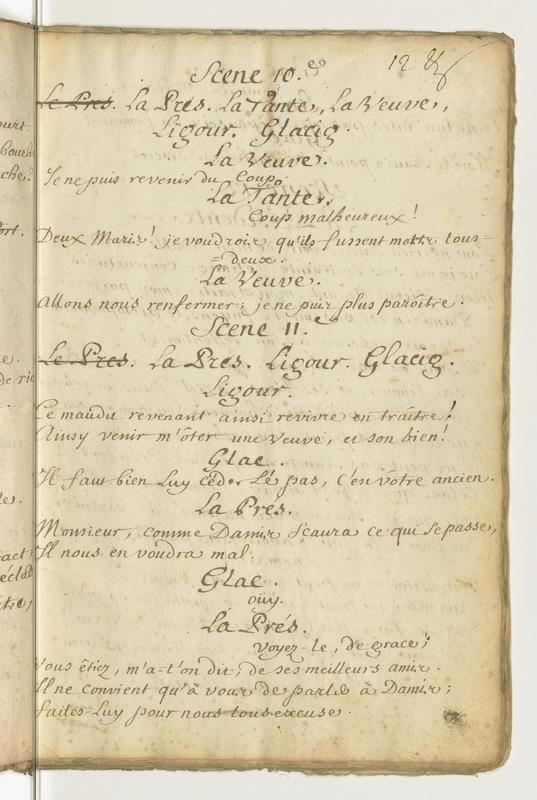 12
Scene 10.e
Le Pres. La Prés. La Tante, La Veuve,
Ligour. Glacig.
La Veuve.
Je ne puis revenir du Coup.
La Tante.
Coup malheureux!
Deux Maris! je voudrois qu'ils fussent morts tous=
=deux.
La Veuve.
Allons nous renfermer; je ne puis plus paroître.
Scene 11.e
Le Pres. La Pres. Ligour. Glacig.
Ligour.
Le maudit revenant ainsi revivre en traître!
Ainsy venir m'ôter une Veuve, et son bien!
Glac.
Il faut bien Luy céder Lé pas, C'est vôtre ancien.
La Prés.
Monsieur, comme Damis Sçaura ce qui se passe,
Il nous en voudra mal.
Glac.
oüy.
La Prés.
Voyez-le, de grace;
Vous étiez, m'a-t'on dit, de ses meilleurs amis.
Il ne convient qu'à vous de parler à Damis;
faites-Luy pour nous tous excuse.